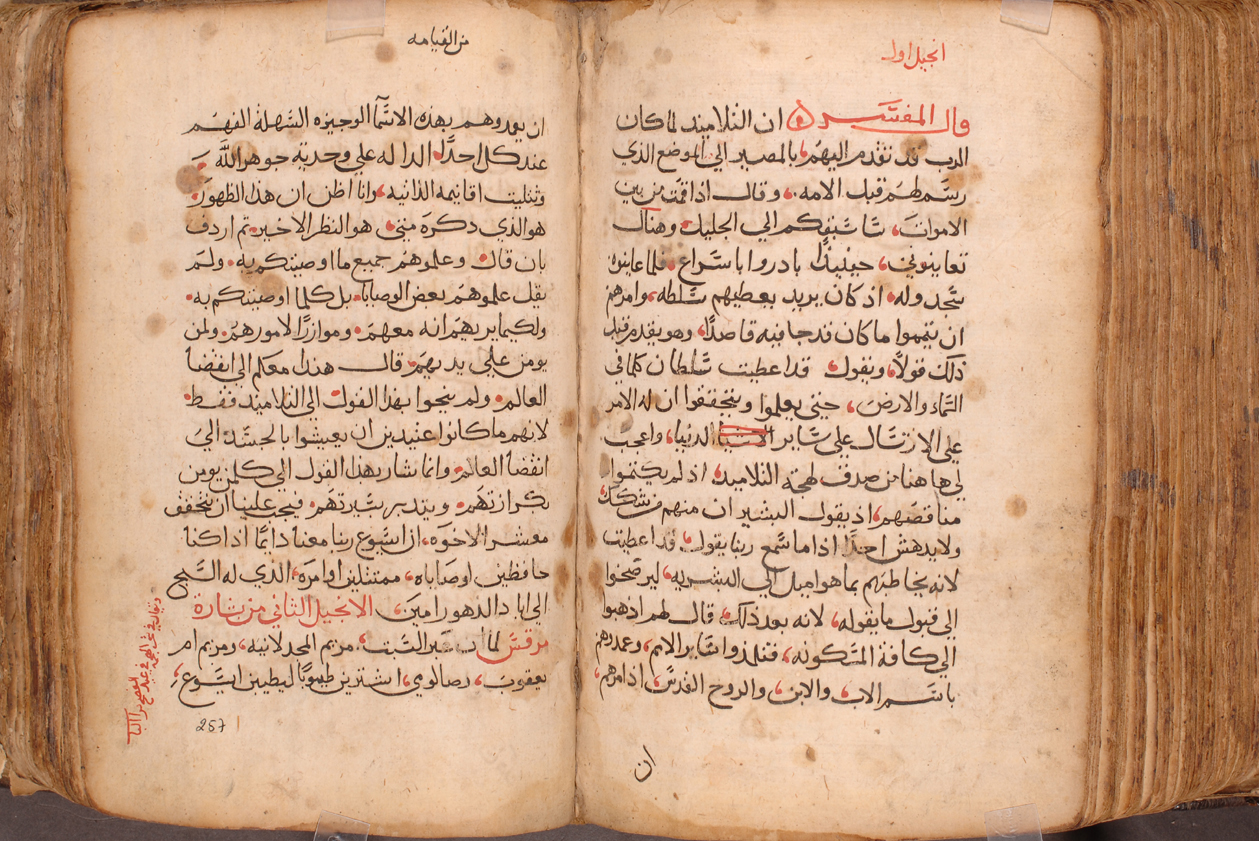 انجيل اول
قال المفسر ان التلاميد لما كان
الرب قد تقدم اليهم بالمصير الي الموضع الذي
رسم لهم قبل الامه. وقال اذا قمت من بين
الاموات، سأسبقكم الي الجليل وهناك
تعاينوني، حينيدًا بادروا باسراع فلما عاينوه
سجدوله، اذ كان يريد يعطيهم سلطه، وامرهم
ان يتمموا ما كان قد جا فيه قاصدًا، وهو يقدم قبل
ذلك قولاً، ويقول قد اعطيت سلطان كما في
السماء والارض، حتي يعلموا ويتحققوا ان له الامر
علي الارسال علي ساير الاشيا الدنيا، واعجب
لي هاهنا من صدق لهجة التلاميد، اذ لم يكتموا
مناقصهم، اذ يقول البشير ان منهم من شكك،
ولا يدهش احدًا اذا ما سمع ربنا يقول قد اعطيت
لانه يخاطبهم بما هو اميل الي البشريه، ليرضخوا
الي قبول ما يقوله، لانه بعد ذلك، قال لهم اذهبوا
الي كافة المسكونه، فتلمذوا ساير الامم، وعمدوهم
باسم الاب والابن والروح القدس، اذ امرهم،
ان
من القيامه
ان يعمدوهم بهذه الاسما الوجيزه السهلة الفهم
عند كل احدًا، الداله علي وحدية جوهر الله
وتثليت اقانيمه الذاتيه، وانا اظن ان هذا الظهور.
هو الذي دكره متي، هو النظر الاخير. تم اردف
بان قال وعلموهم جميع ما اوصيتكم به. ولم
يقل علموهم بعض الوصايا. بل كلما اوصيتكم به.
ولكيما يريهم انه معهم. وموازرًا لامورهم. ولمن
يومن علي يديهم. قال هندا معكم الي انقضا
العالم. ولم ينحوا بهذا القول الي التلاميد فقط.
لانهم ما كانوا عتيدين ان يعيشوا بالجسد الي
انقضا العالم. وانما يشار بهذا القول الي كلمن يومن
بكرازتهم. ويتدبر بسيرتهم. فيجب علينا ان نتحقق
معشر الاخوه، ان ايسوع ربنا معنا دايمًا اذا كنا
حافظين اوصاياه، ممتثلين اوامره، الذي له السبح
الي اباد الدهور امين، الانجيل الثاني من بشارة
مرقس لما ان السبت، مريم المجدلانيه، ومريم ام
يعقوب، وصالومي، اشترين طيوبًا ليطيبن ايسوع،
257